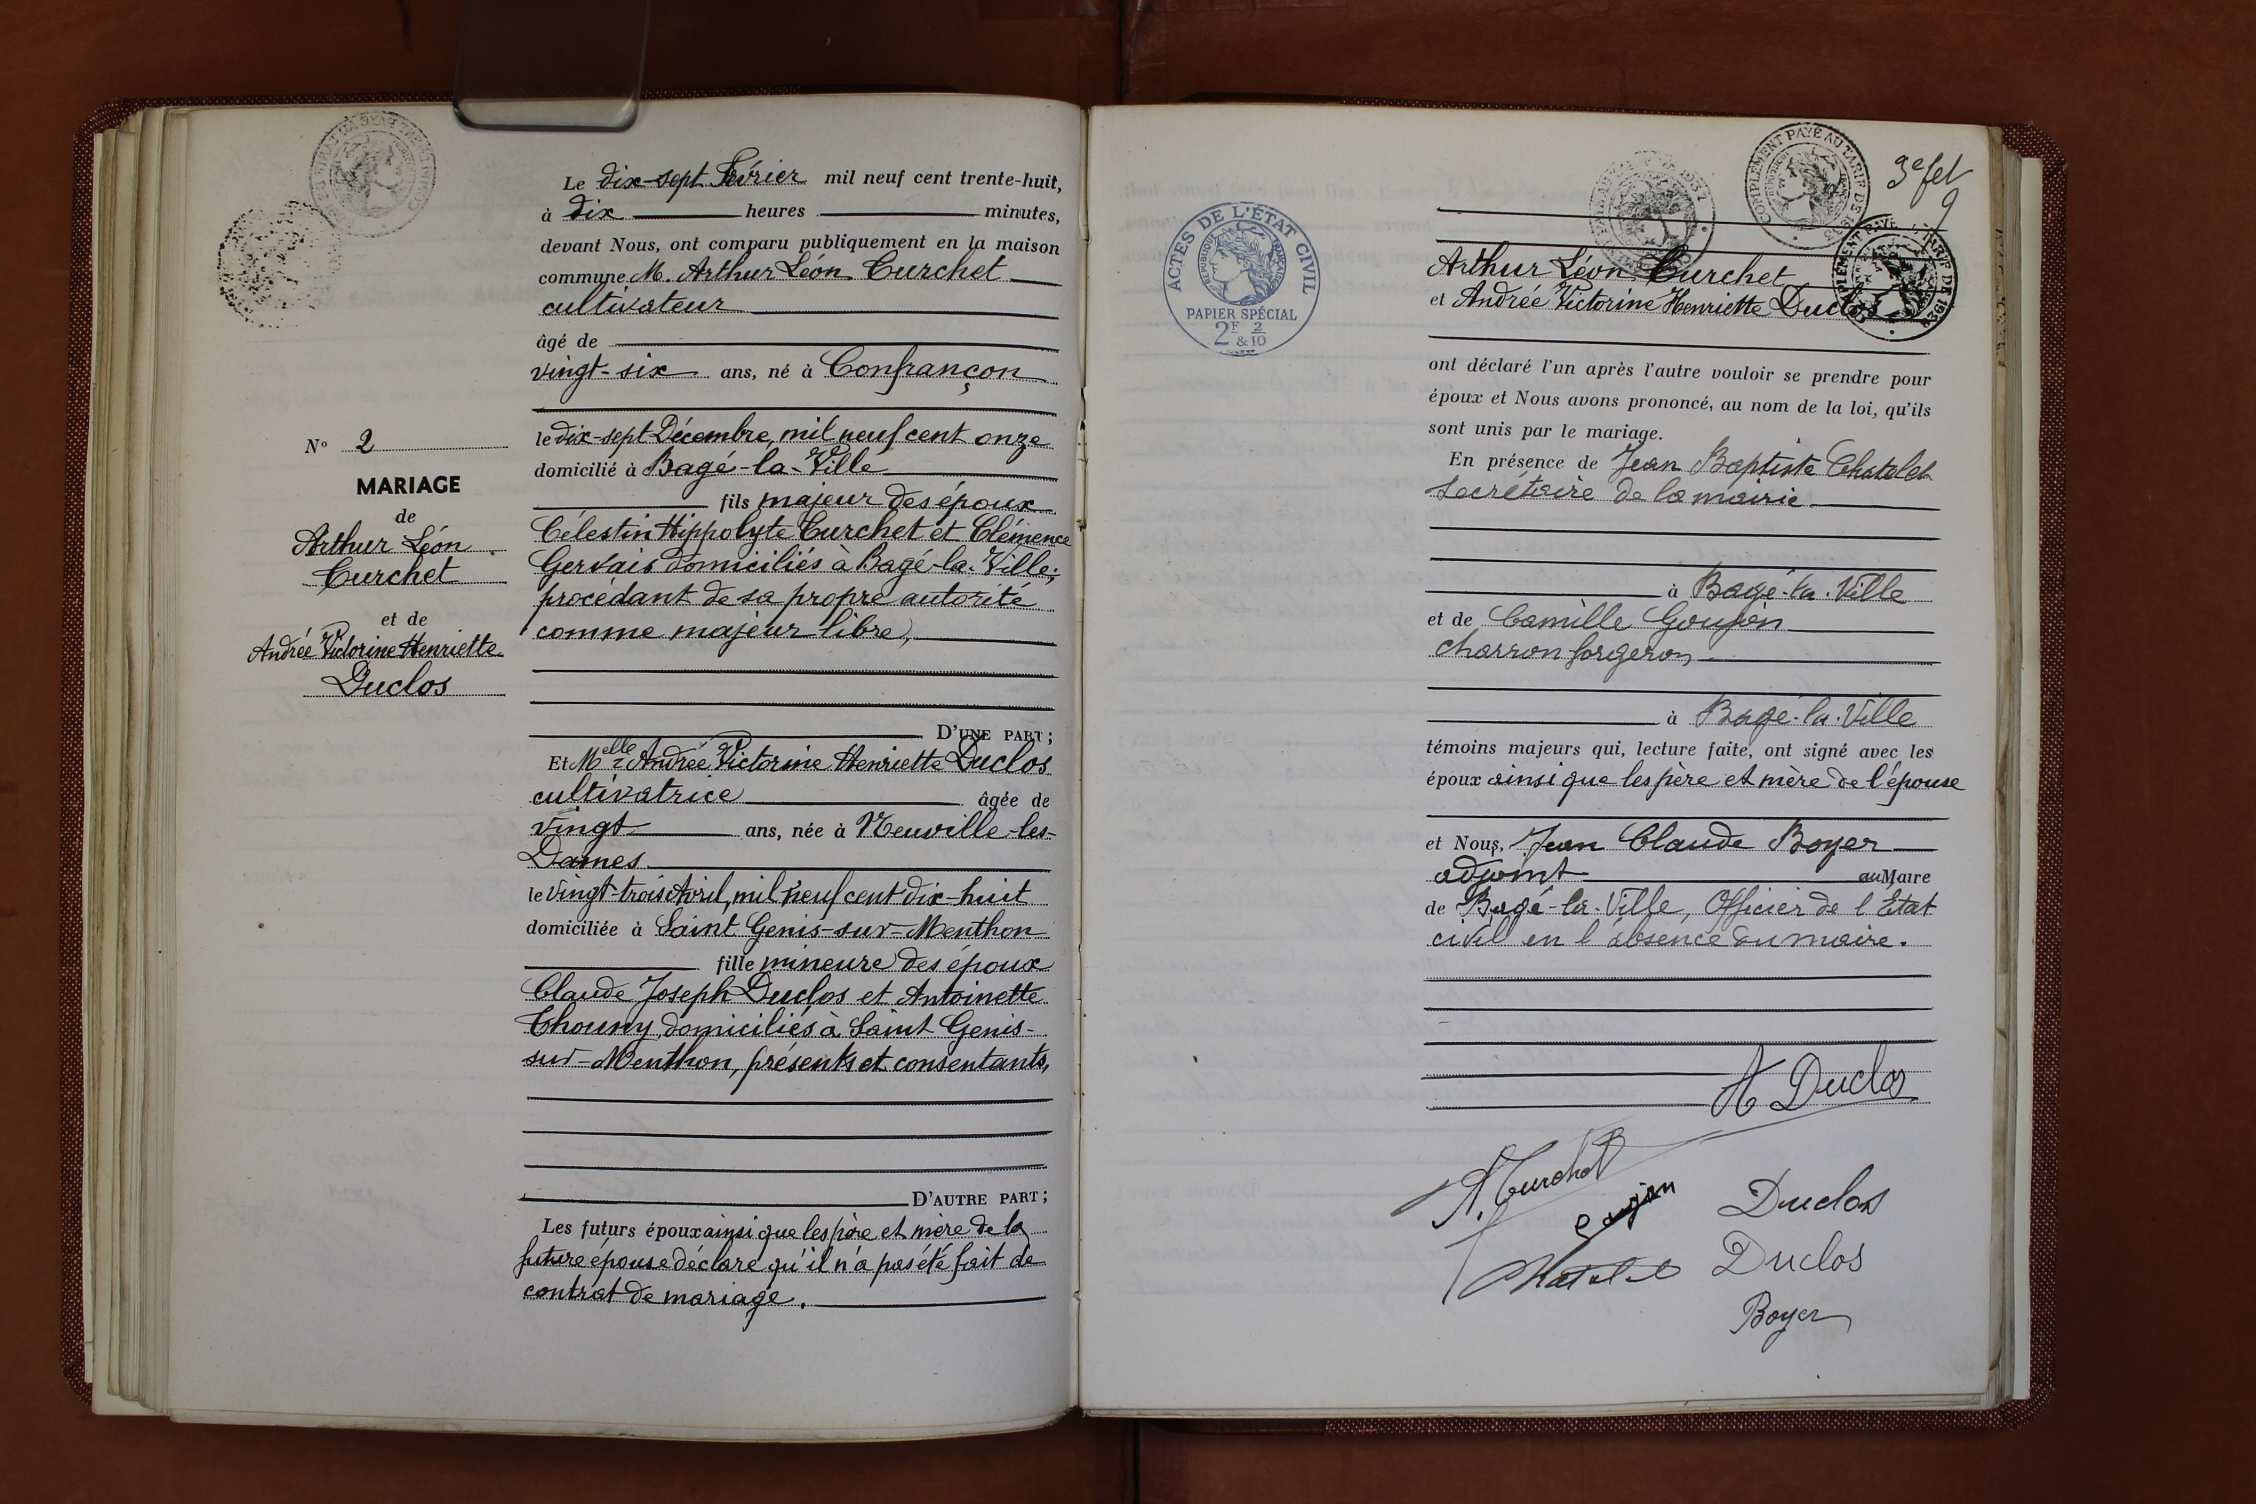 Le dix-sept Février mil neuf cent trente-huit,
à dix heures minutes,
devant Nous, ont comparu publiquement en la maison
commune M. Arthur Léon Curchet
cultivateur
âgé de
vingt-six ans, né à Confrançon
le dix-sept Décembre, mil neuf cent onze
domicilié à Bagé-la-Ville
fils majeur des époux
Célestin Hippolyte Curchet et Clémence
Gervais domiciliés à Bagé-la-Ville;
procédant de sa propre autorité
comme majeur libre,
D'UNE PART;
Et Melle Andrée Victorine Henriette Duclos
cultivatrice âgée de
vingt ans, née à Neuville-les-
Dames
le vingt-trois Avril, mil neuf cent dix-huit
domiciliée à Saint Genis-sur-Menthon
fille mineure des époux
Claude Joseph Duclos et Antoinette
Chouny, domiciliés à Saint Genis-
sur-Menthon, présents et consentants,
D'AUTRE PART;
Les futurs époux ainsi que les père et mère de la
future épouse déclaré qu'il n'a pas été fait de
contrat de mariage.
No 2
MARIAGE
de
Arthur Léon
Curchet
et de
Andrée Victorine Henriette
Duclos
ACTES DE L'ÉTAT CIVIL
RÉPUBLIQUE FRANÇAISE
PAPIER SPÉCIAL
2F & 2/10
COMPLÉMENT PAYÉ AU TARIF DE
3e fet
9
Arthur Léon Curchet
et Andrée Victorine Henriette Duclos
ont déclaré l'un après l'autre vouloir se prendre pour
époux et Nous avons prononcé, au nom de la loi, qu'ils
sont unis par le mariage.
En présence de Jean Baptiste Chatelet
secrétaire de la mairie
à Bagé-la-Ville
et de Camille Goujon
charron forgeron
à Bagé-la-Ville
témoins majeurs qui, lecture faite, ont signé avec les
époux ainsi que les père et mère de l'épouse
et Nous, Jean Claude Boyer
adjoint au Maire
de Bagé-la-Ville, Officier de l'Etat
civil en l'absence du maire.
A Duclos
A. Curchet
Goujon
Duclos
Chatelet
Duclos
Boyer